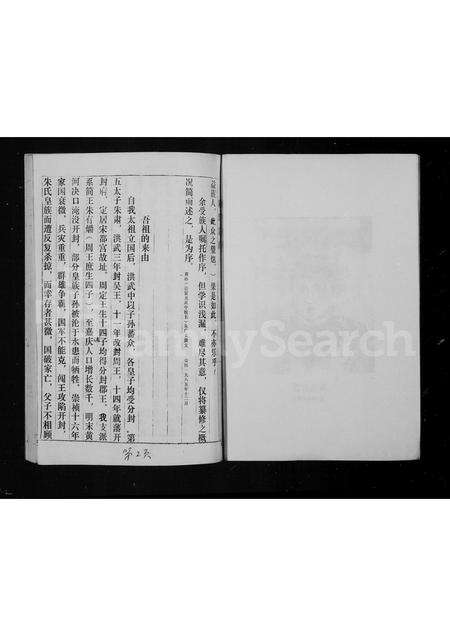 族人，众之望也）果是如此，不亦乐乎！
余受族人嘱托作序，但学识浅漏，难尽其意，仅将纂修之概
况简而述之，是为序。
公元一九八五年十二月
吾祖的来由
自我太祖立国后，洪武中以子孙蕃众，各皇子均受分封，第
五太子朱肃，洪武三年封吴王，十一年改封周王，十四年就藩开
封府，定居宋都宫故址，周定王生十四子均得分封郡王，我支派
系简王朱有爝（周王庶生四子），至嘉庆人口增长数千，明末黄
河决口淹没开封，部分皇族子孙被沦于水患而牺牲，崇祯十六年
家国衰微，兵灾重重，群雄争霸，国军不能克，闯王攻陷开封，
朱氏皇族而遭反复杀掠，而幸存者甚微，国破家亡，父子不相顾
第2页
FamilySearch